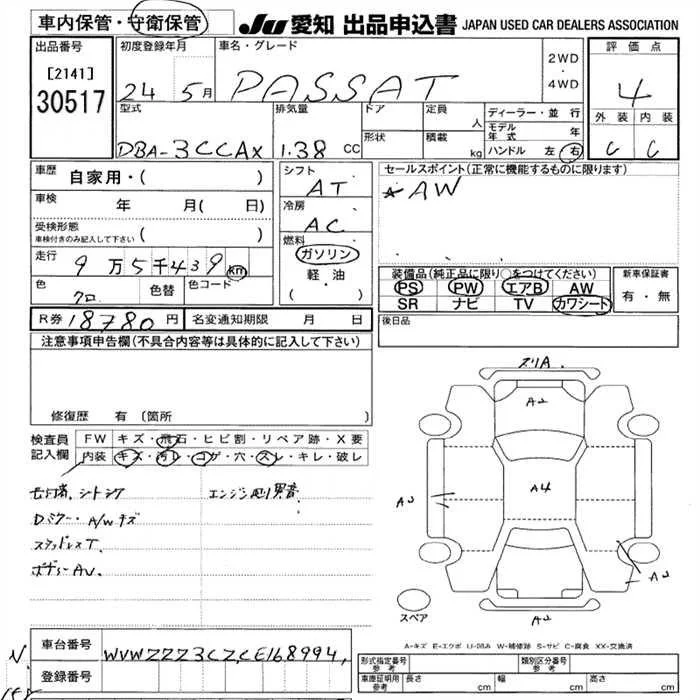 車内保管・守衛保管
JU 愛知 出品申込書 JAPAN USED CAR DEALERS ASSOCIATION
出品番号
[2141]
30517
初度登録年月
24 5月
車名・グレード
PASSAT
2WD
・
4WD
評価点
4
外装 内装
C C
型式
DBA-3CCAX
排気量
1.38 CC
ドア
形状
定員
人
積載
kg
ディーラー・並行
モデル年式 年
ハンドル 左 右
車歴
自家用・( )
車検
年 月( 日)
受検形態
車検付きのみ記入して下さい ( )
走行
9万5千439 km
色
クロ
色替
色コード
シフト
AT
冷房
AC
燃料
ガソリン
軽・油
( )
セールスポイント(正常に機能するものに限ります)
AW
装備品(純正品に限り○をつけてください)
PS PW エアB AW
SR ナビ TV カワシート
新車保証書
有・無
R券 18780 円
名変通知期限 月 日
後日品
注意事項申告欄(不具合内容等は具体的に記入して下さい)
修復歴 有(箇所 )
検査員
記入欄
FW キズ・飛石・ヒビ割・リペア跡・X要
内装 キズ・汚レ・コゲ・穴・スレ・キレ・破レ
Dミラー・A/Wキズ
スタッドレスT.
ズリA
A2
A4
スペア
A-キズ E-エクボ U-凹み W-補修跡 S-サビ C-腐食 XX-交換済
車台番号
WVWZZZ3CZCE168994
登録番号
形式指定番号
参考
類別区分番号
参考
車庫証明用
参考
長さ cm
幅 cm
高さ cm